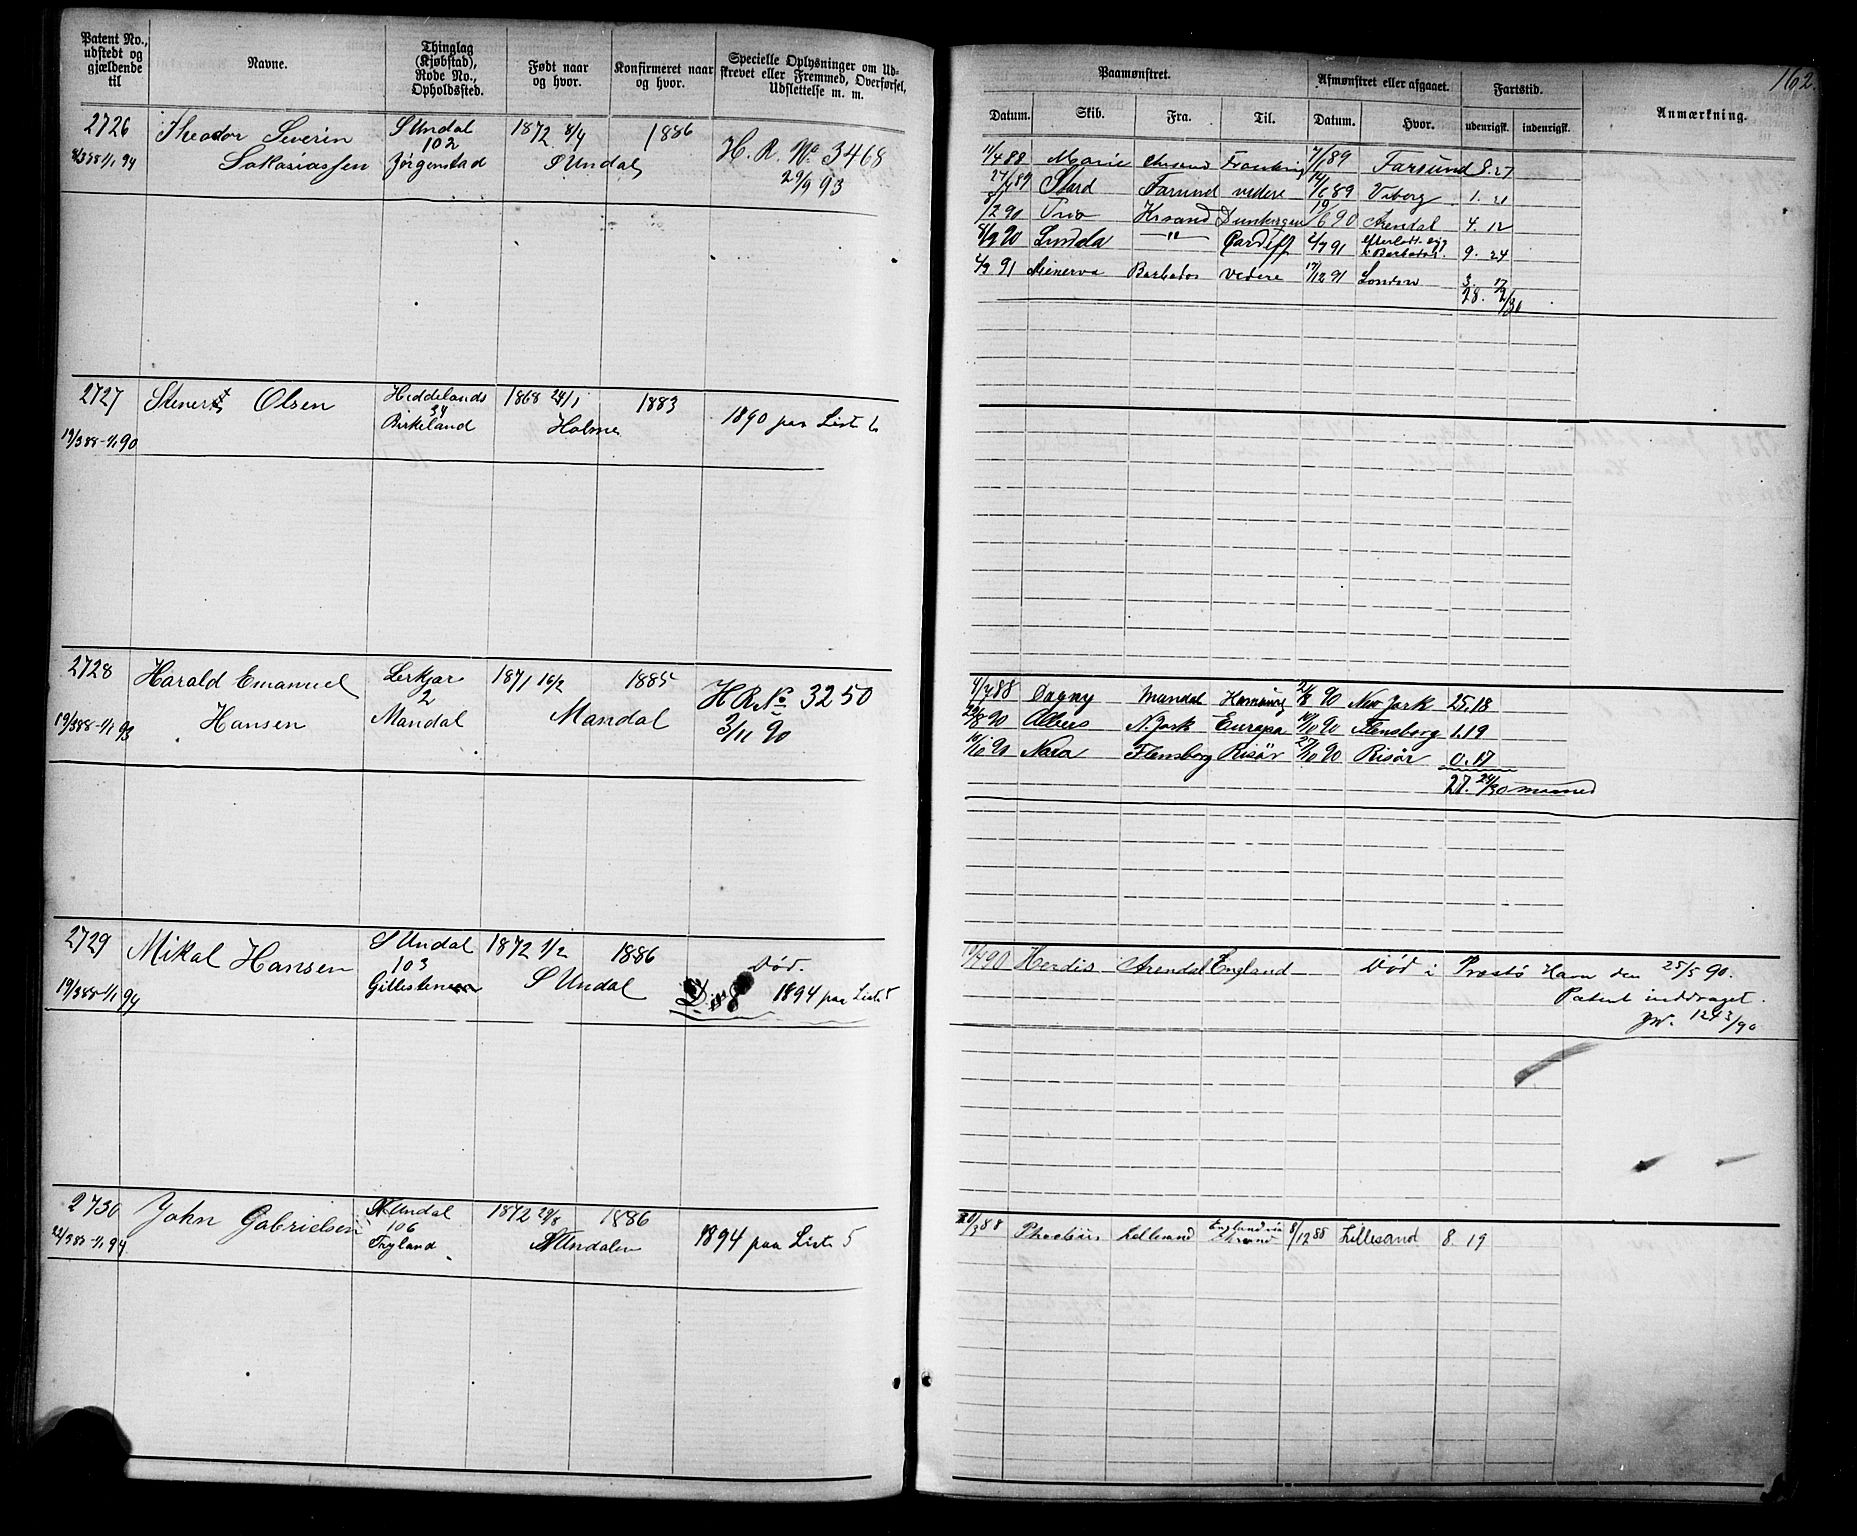 Patent No., udstedt og gjældende til
Navne.
Thinglag (Kjøbstad), Rode No., Opholdssted.
Født naar og hvor.
Konfirmeret naar og hvor.
Specielle Oplysninger om Udskrevet eller Fremmed, Overførsel, Udslettelse m. m.
Paamønstret.
Afmønstret eller afgaaet.
Fartstid.
Anmærkning.
162.
Datum. Skib. Fra. Til. Datum. Hvor. udenrigsk. indenrigsk.
2726 Theodor Severin S Undal 1872 8/4 1886
102
Sakariassen Jørgenstad S Undal H. R. No 3468
29/9 93
11/4 88 Marie 7/1 89 Farsund 8. 27
27/4 89 Farsund videre 14/6 89 Viborg 1.
8/2 90 19/6 90 Arendal 4. 12
8/9 90 Lunda " Cardiff 2/7 91 9. 24
4/9 91 Minerva Barbados videre 17/12 91 London 3. 17
28. 2/30
2727 Olsen Heddelands 1868 24/1 1883
34
19/3 88-1/1 90 Birkeland Holme 1890 paa Liste 6
2728 Harald Emanuel Lerkjær 1871 16/2 1885 H R No 3250
2
19/3 88-1/1 93 Hansen Mandal Mandal 3/11 90
4/4 88 Dagny Mandal 90 New York 25,18
90 N. York Europa 10/10 90 Flensborg 1.19
10/10 90 Nora Flensborg Risør 27/10 90 Risør 0.17
27. 24/30 maaned
2729 Mikal Hansen S Undal 1872 1/2 1886 Død.
103
19/3 88-1/1 94 S Undal 1894 paa Liste 5
90 Herdis Arendal England Død i Præstø Havn den 25/5 90.
Patent inddraget.
JN. 1243/90
2730 John Gabrielsen Undal 1872 29/8 1886
106
1/1 94 Tryland Undalen 1894 paa Liste 5
Lillesand 8/12 88 Lillesand 8. 19